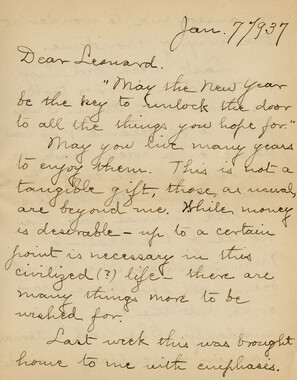 Jan. 7/1937
Dear Leonard.
"May the New Year
be the key to unlock the door
to all the things you hope for."
May you live many years
to enjoy them. This is not a
tangible gift, those, as usual,
are beyond me. While money
is desirable - up to a certain
point is necessary in this
civilized (?) life - there are
many things more to be
wished for.
Last week this was brought
home to me with emphasis.